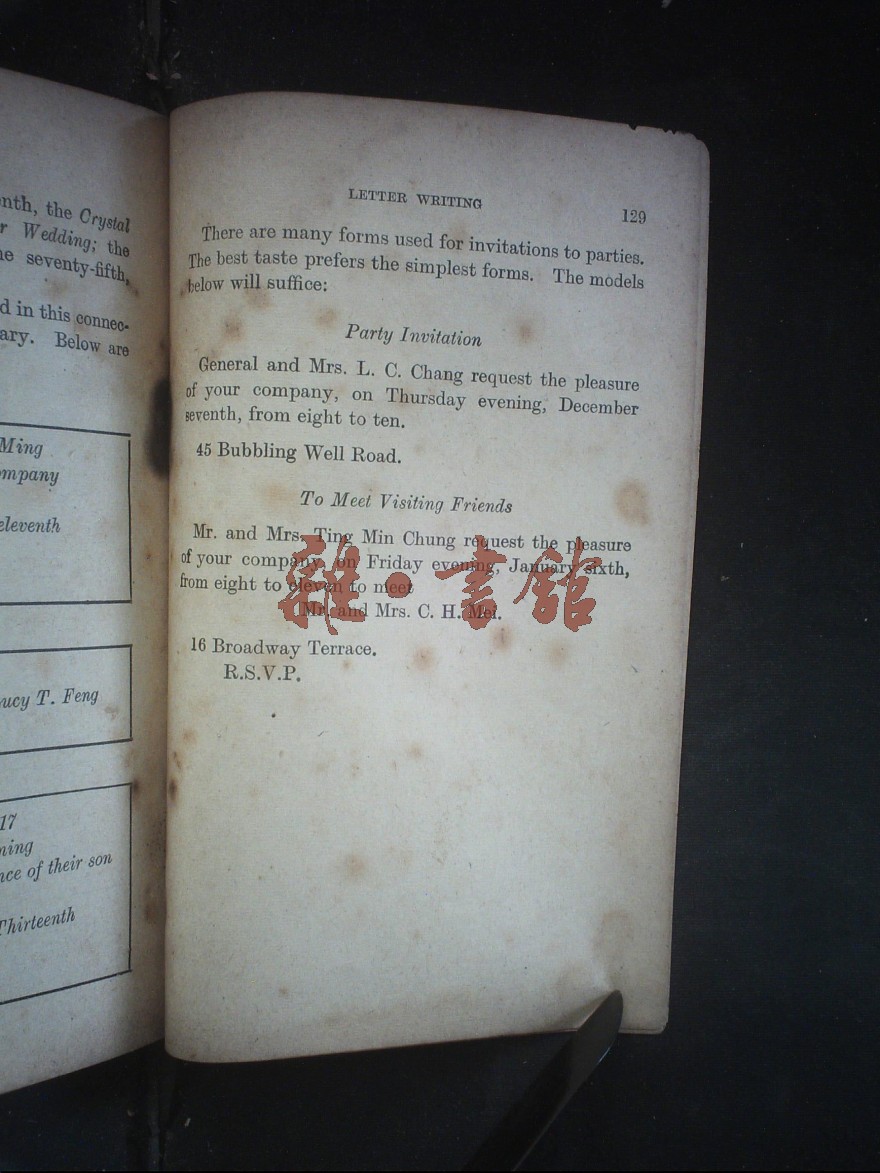 nth, the Crystal
r Wedding; the
ne seventy-fifth,
d in this connec-
ary. Below are
Ming
mpany
eleventh
ucy T. Feng
17
ning
nce of their son
Thirteenth
LETTER WRITING
129
There are many forms used for invitations to parties.
The best taste prefers the simplest forms. The models
below will suffice:
Party Invitation
General and Mrs. L. C. Chang request the pleasure
of your company, on Thursday evening, December
seventh, from eight to ten.
45 Bubbling Well Road.
To Meet Visiting Friends
Mr. and Mrs. Ting Min Chung request the pleasure
of your company, on Friday evening, January sixth,
from eight to eleven to meet
Mr. and Mrs. C. H. Mei.
16 Broadway Terrace.
R.S.V.P.
雜·書館